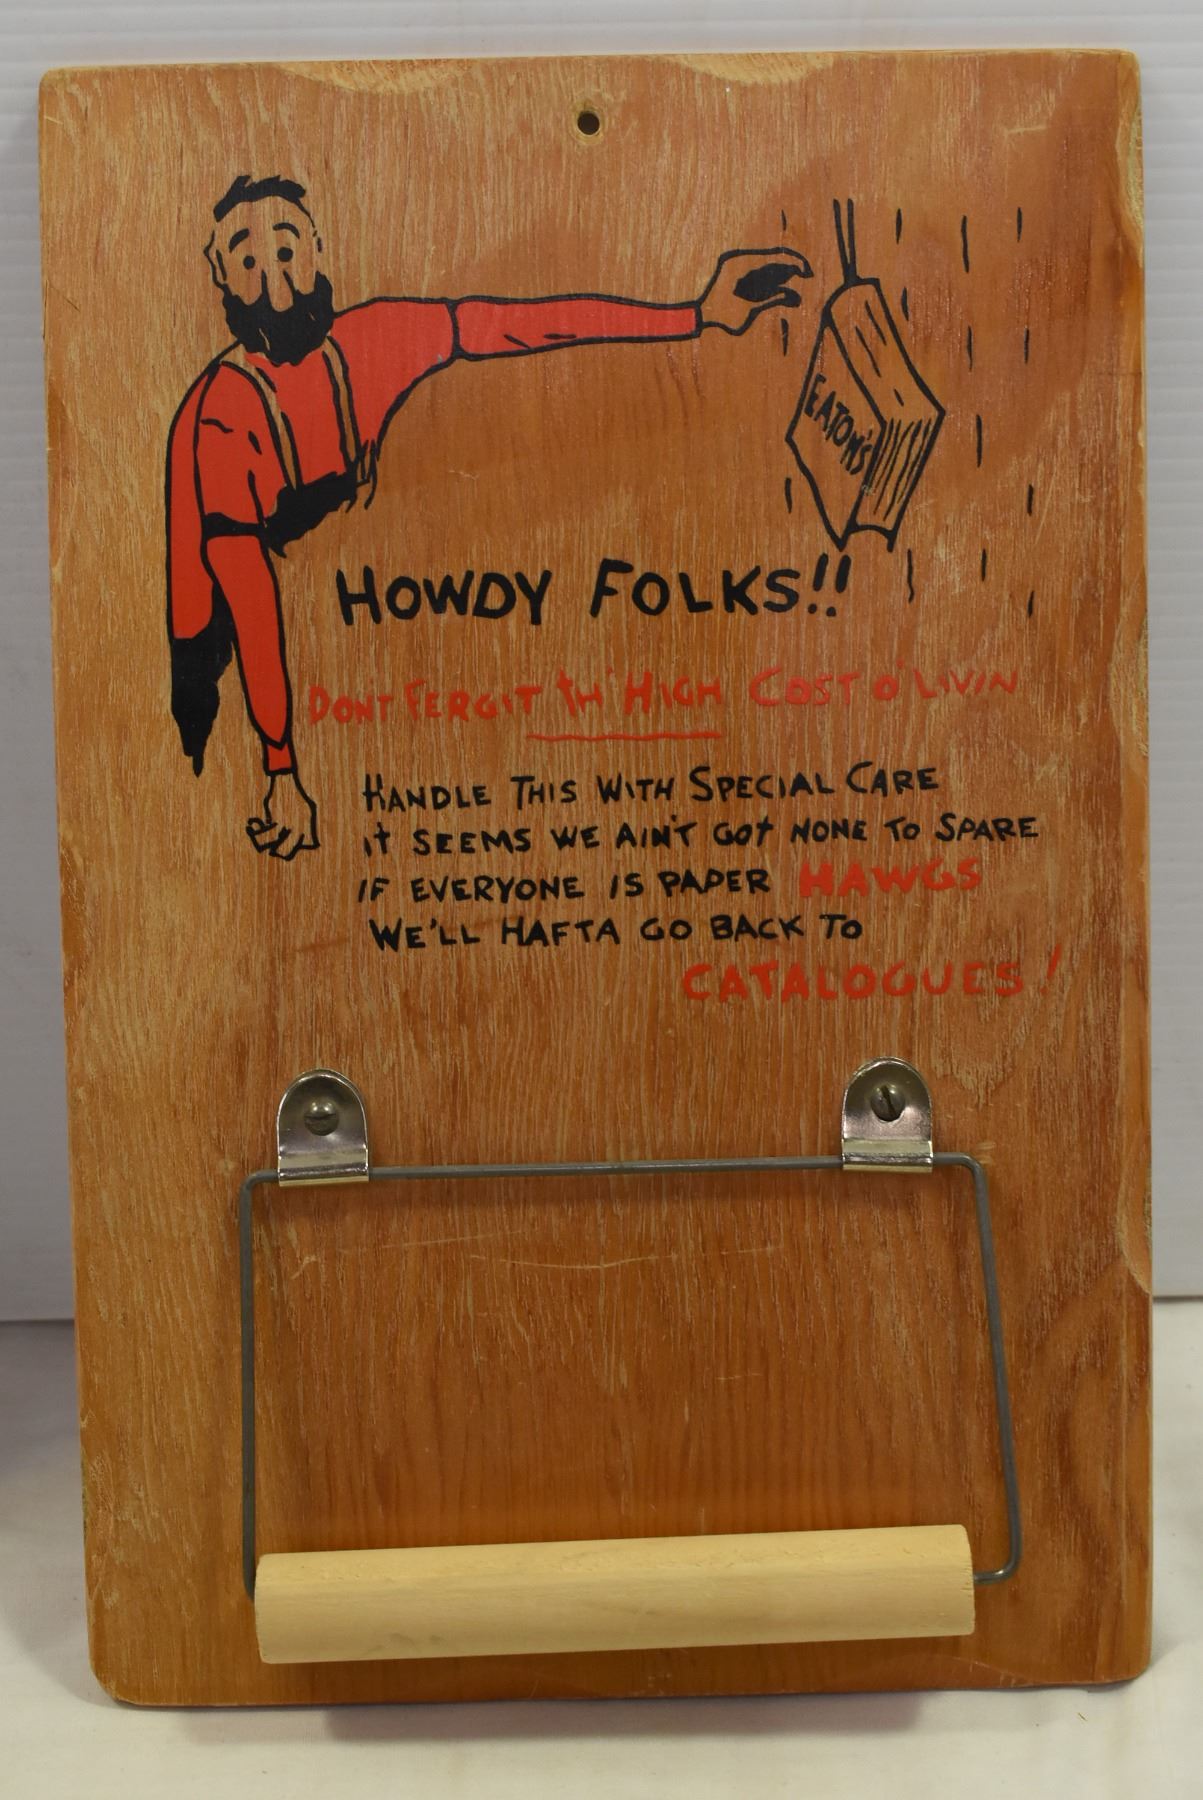 EATON'S
HOWDY FOLKS!!
DON'T FERGIT TH' HIGH COST O' LIVIN
HANDLE THIS WITH SPECIAL CARE
IT SEEMS WE AIN'T GOT NONE TO SPARE
IF EVERYONE IS PAPER HAWGS
WE'LL HAFTA GO BACK TO
CATALOGUES!